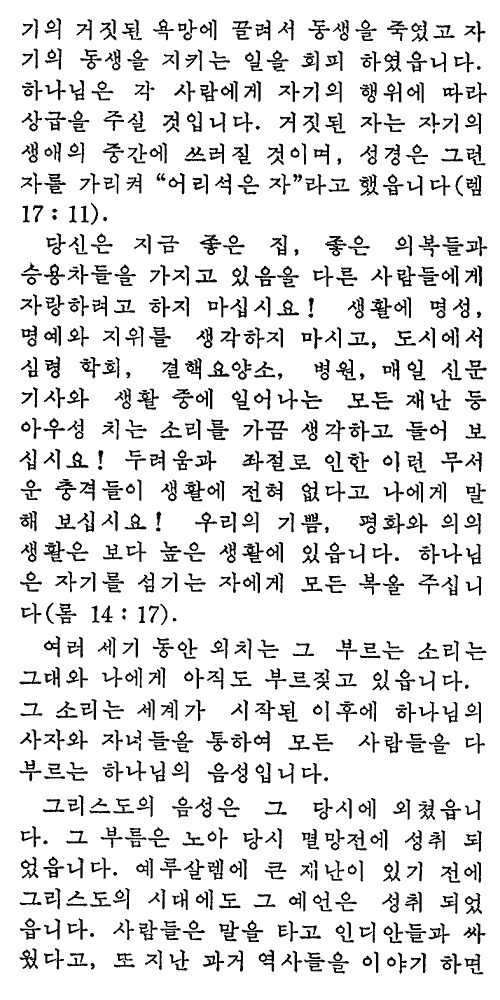 기의 거짓된 욕망에 끌려서 동생을 죽였고 자
기의 동생을 지키는 일을 회피 하였읍니다.
하나님은 각 사람에게 자기의 행위에 따라
상급을 주실 것입니다. 거짓된 자는 자기의
생애의 중간에 쓰러질 것이며, 성경은 그런
자를 가리켜 “어리석은 자”라고 했읍니다(렘
17 : 11).
당신은 지금 좋은 집, 좋은 의복들과
승용차들을 가지고 있음을 다른 사람들에게
자랑하려고 하지 마십시요! 생활에 명성,
명예와 지위를 생각하지 마시고, 도시에서
심령 학회, 결핵요양소, 병원, 매일 신문
기사와 생활 중에 일어나는 모든 재난 등
아우성 치는 소리를 가끔 생각하고 들어 보
십시요! 두려움과 좌절로 인한 이런 무서
운 충격들이 생활에 전혀 없다고 나에게 말
해 보십시요! 우리의 기쁨, 평화와 의의
생활은 보다 높은 생활에 있읍니다. 하나님
은 자기를 섬기는 자에게 모든 복을 주십니
다(롬 14 : 17).
여러 세기 동안 외치는 그 부르는 소리는
그대와 나에게 아직도 부르짖고 있읍니다.
그 소리는 세계가 시작된 이후에 하나님의
사자와 자녀들을 통하여 모든 사람들을 다
부르는 하나님의 음성입니다.
그리스도의 음성은 그 당시에 외쳤읍니
다. 그 부름은 노아 당시 멸망전에 성취 되
었읍니다. 예루살렘에 큰 재난이 있기 전에
그리스도의 시대에도 그 예언은 성취 되었
읍니다. 사람들은 말을 타고 인디안들과 싸
웠다고, 또 지난 과거 역사들을 이야기 하면